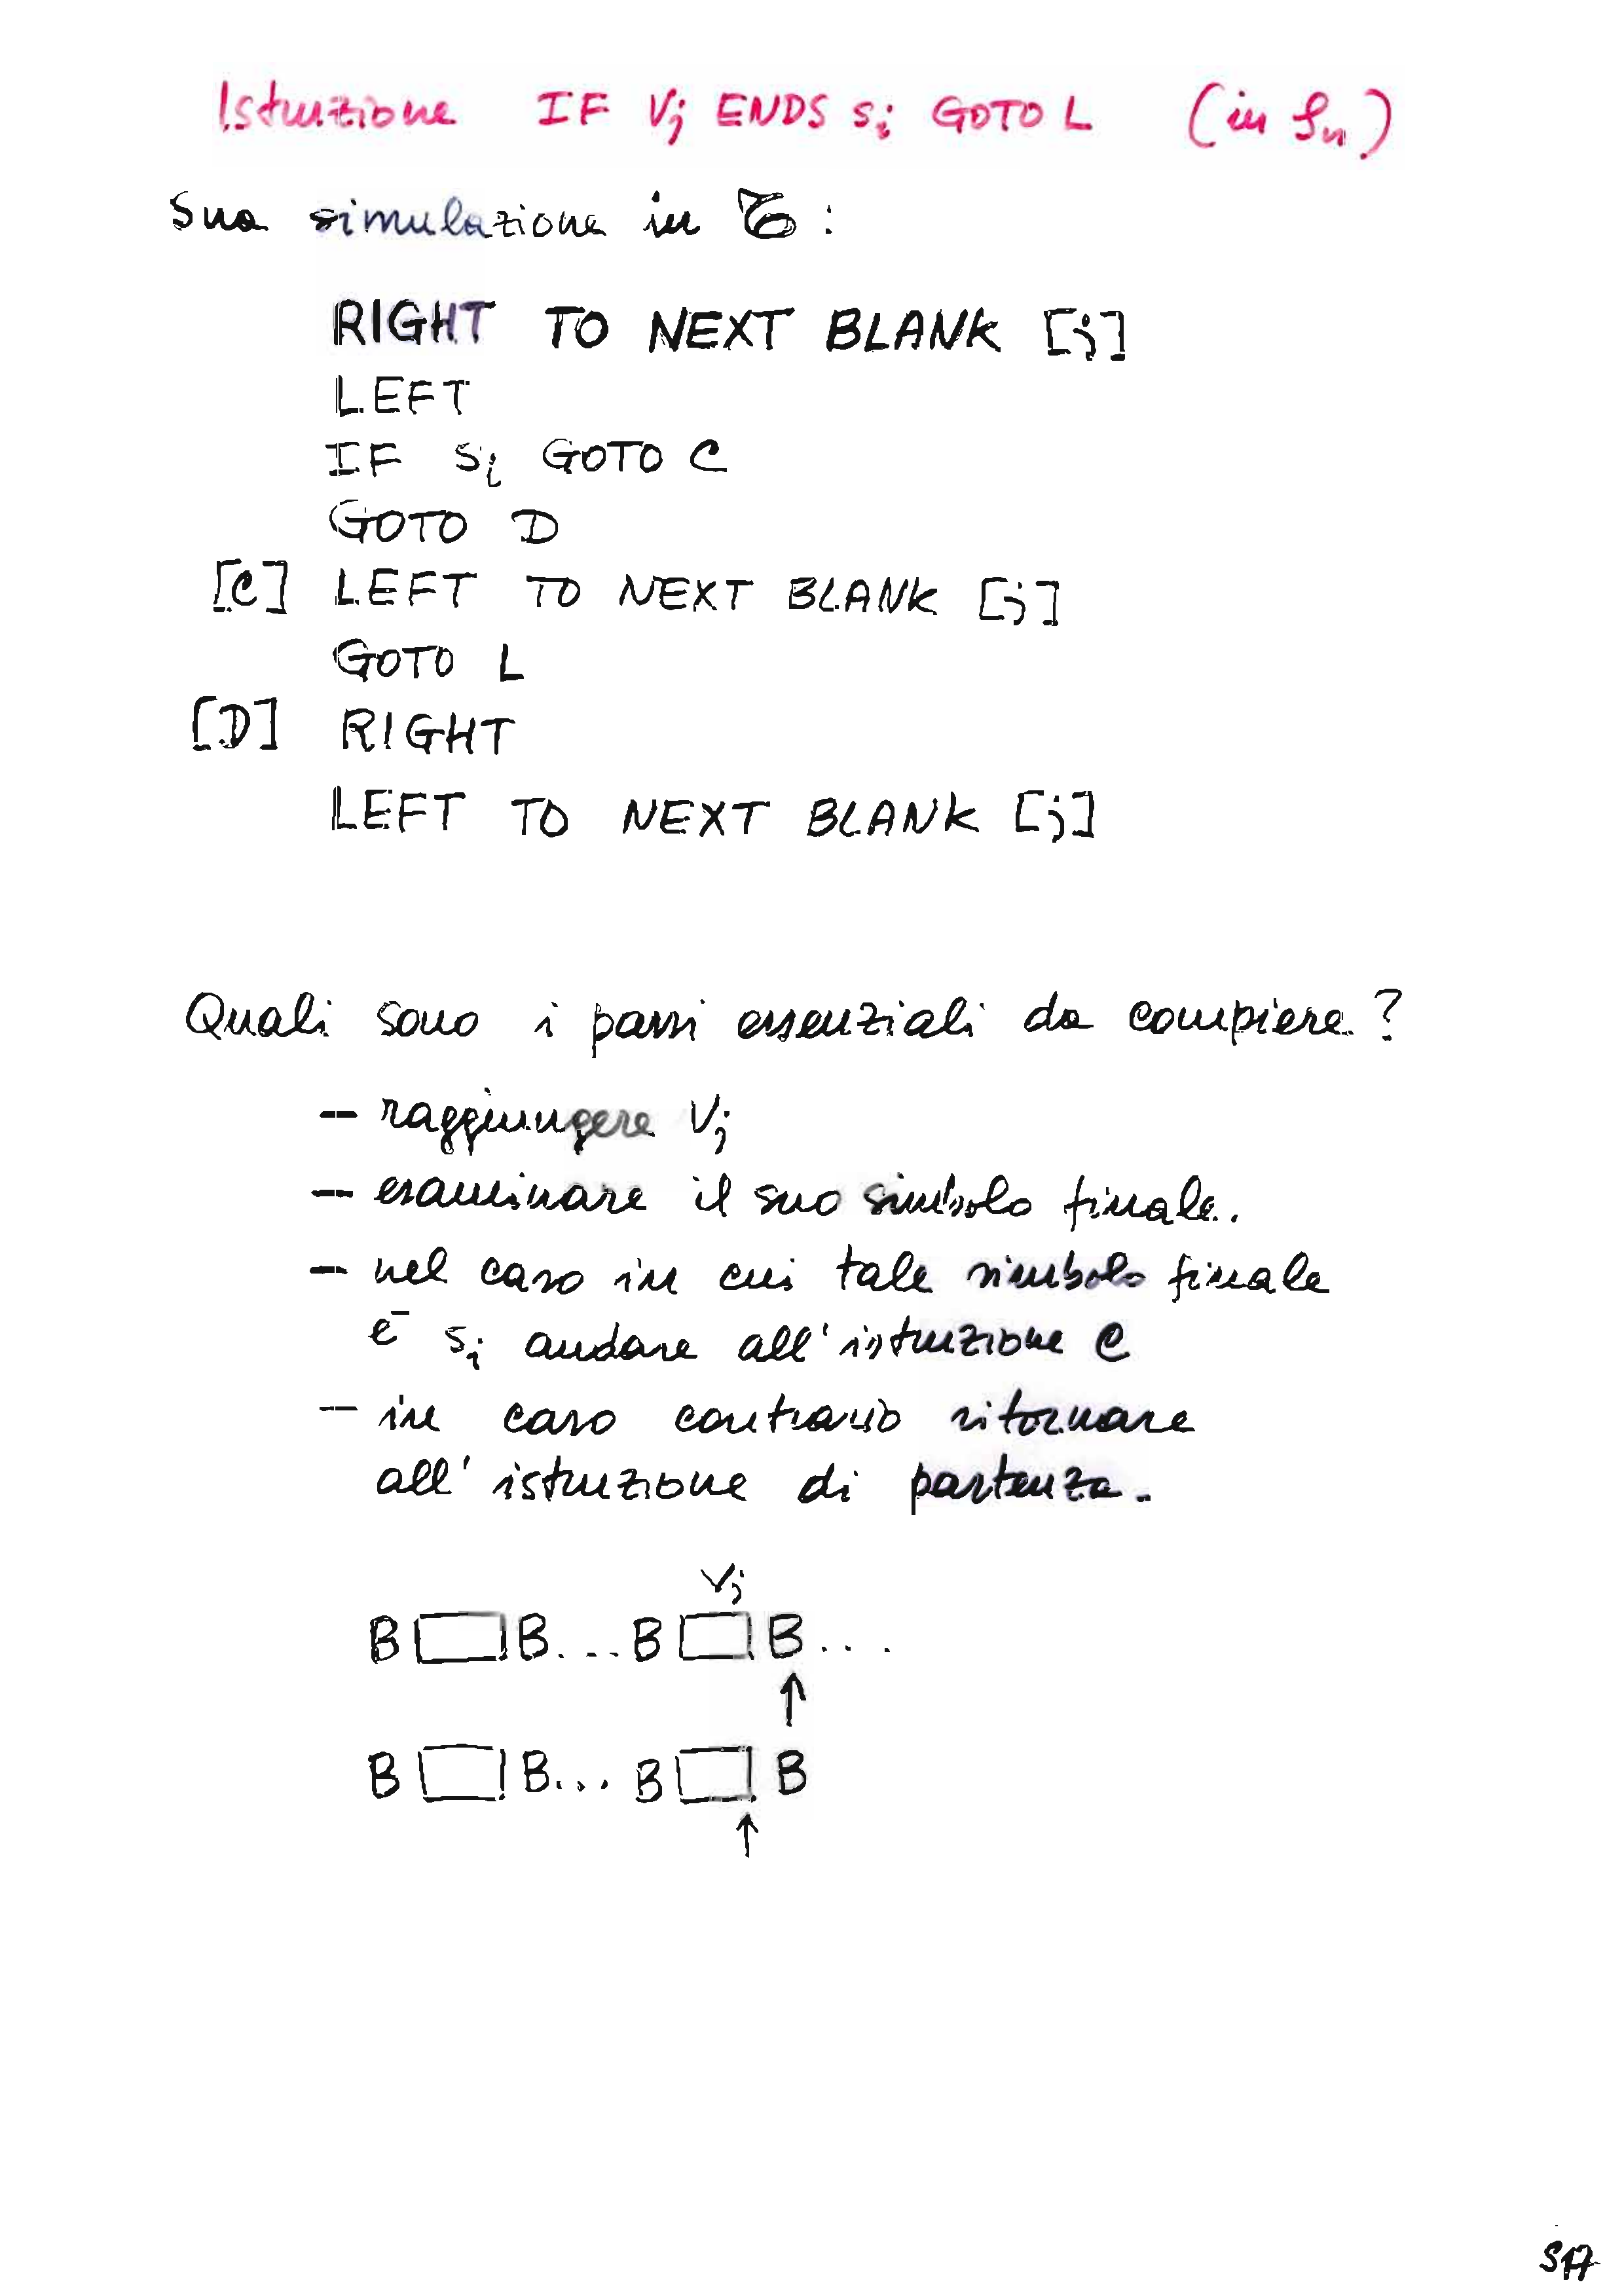 Istruzione IF Vj ENDS si GOTO L (in 𝒮n)
Sua simulazione in 𝒯 :
RIGHT TO NEXT BLANK [j]
LEFT
IF si GOTO C
GOTO D
[C] LEFT TO NEXT BLANK [j]
GOTO L
[D] RIGHT
LEFT TO NEXT BLANK [j]
Quali sono i passi essenziali da compiere?
– raggiungere Vj
– esaminare il suo simbolo finale.
– nel caso in cui tale simbolo finale
è si andare all'istruzione C
– in caso contrario ritornare
all'istruzione di partenza.
Vj
B B...B B...
↑
B B...B B
↑
S17